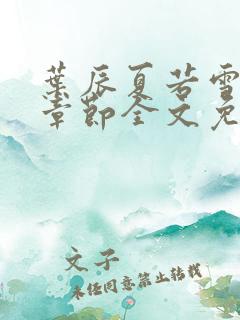 葉辰夏若雪
章節全文免
文子
未经同意禁止转载